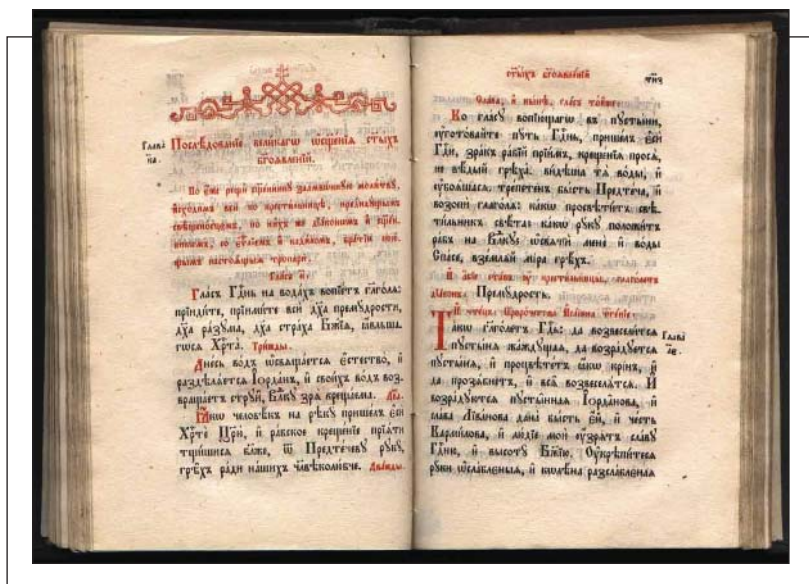 Глава̀ н҃а.
Послѣ́дованїе вели́кагѡ ѡ҆сщ҃е́нїѧ ст҃ы́хъ
бг҃оѧвле́нїй.
По є҆́же рещѝ сщ҃е́нникꙋ заамво́ннꙋю моли́твꙋ,
и҆схо́димъ всѝ ко крести́льницѣ, предидꙋ́щымъ
Гла́съ и҃.
Гла́съ гдⷭ҇нь на вода́хъ вопїе́тъ гл҃го́лѧ:
прїиди́те, прїими́те всѝ дх҃а премꙋ́дрости,
дх҃а ра́зꙋма, дх҃а стра́ха бж҃їѧ, ꙗ҆́вльша-
гѡсѧ хрⷭ҇та̀. Три́жды.
Дне́сь во́дъ ѡ҆свѧща́етсѧ є҆стество̀, и҆
раздѣлѧ́етсѧ і҆ѻрда́нъ, и҆ свои́хъ во́дъ воз-
враща́етъ стрꙋи̑, влⷣкꙋ зрѧ̀ креща́ема. Два́.
Ꙗ҆́кѡ человѣ́къ на рѣ́кꙋ прише́лъ є҆сѝ
хрⷭ҇тѐ цр҃ѝ, и҆ ра́бское креще́нїе прїѧ́ти
тщи́шисѧ бл҃же, ѿ предте́чевꙋ рꙋкꙋ̀,
грѣ̑хъ ра́ди на́шихъ чл҃вѣколю́бче. Два́жды.
ст҃ы́хъ бг҃оѧвле́нїй
тп҃з
Сла́ва, и҆ ны́нѣ, гла́съ то́йже
Ко гла́сꙋ вопїю́щагѡ въ пꙋсты́ни,
ᲂу҆гото́вайте пꙋ́ть гдⷭ҇нь, прише́лъ є҆сѝ
гдⷭ҇и, зра́къ ра́бїй прїи́мъ, креще́нїѧ просѧ̀,
не вѣ́дый грѣха̀: ви́дѣша тѧ̀ во́ды, и҆
ᲂу҆боѧ́шасѧ: тре́петенъ бы́сть предте́ча, и҆
возопѝ глаго́лѧ: ка́кѡ просвѣти́тъ свѣ-
ти́льникъ свѣ́та: ка́кѡ рꙋ́кꙋ положи́тъ
ра́бъ на влⷣкꙋ: ѡ҆свѧтѝ менѐ и҆ во́ды
сп҃се, взе́млѧй мі́ра грѣхѝ.
діа́конъ: Премꙋ́дрость.
И҆ чте́цъ, прⷪ҇ро́чества И҆са́їина чте́нїе:
Та́кѡ гл҃го́летъ гдⷭ҇ь: да возвесели́тсѧ
Глава̀ л҃е.
пꙋсты́нѧ жа́ждꙋщаѧ, да возра́дꙋетсѧ
пꙋсты́нѧ, и҆ процвѣте́тъ ꙗ҆́кѡ кри́нъ, и҆
да прозѧ́бнетъ, и҆ всѧ̑ возвеселѧ́тсѧ. И҆
возра́дꙋютсѧ пꙋсты̑ннаѧ і҆ѻрда́нѡва, и҆
сла́ва лїва́нова дана̀ бы́сть є҆́й, и҆ че́сть
карми́лова, и҆ лю́дїе моѝ ᲂу҆́зрѧтъ сла́вꙋ
гдⷭ҇ню, и҆ высотꙋ̀ бж҃їю. Оу҆крѣпи́тесѧ
рꙋ́ки ѡ҆сла́бленыѧ, и҆ кѡлѣ́на разсла́бленаѧ